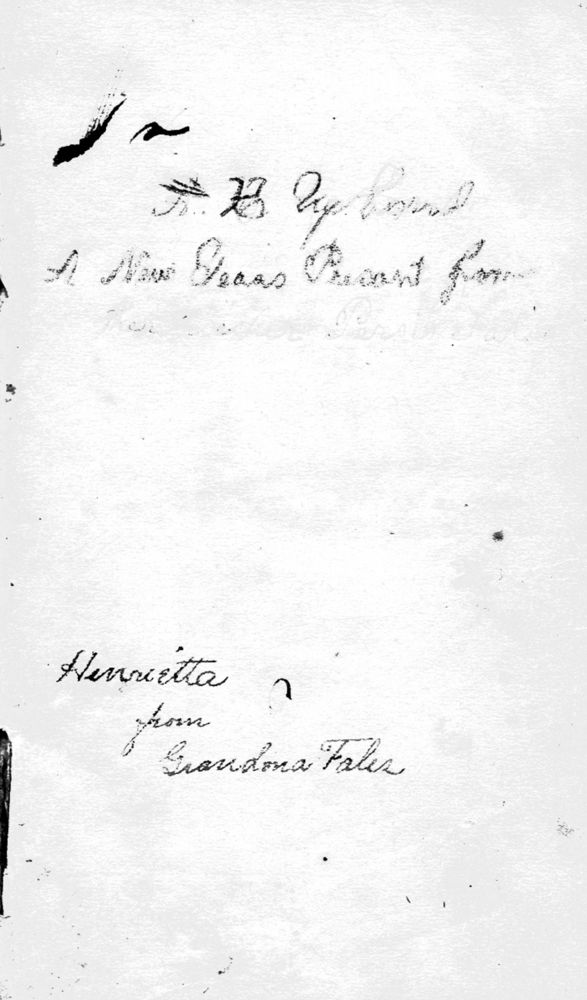 A. H. Upham
A New Years Present from
Her
Henrietta
from
Grandma Fales